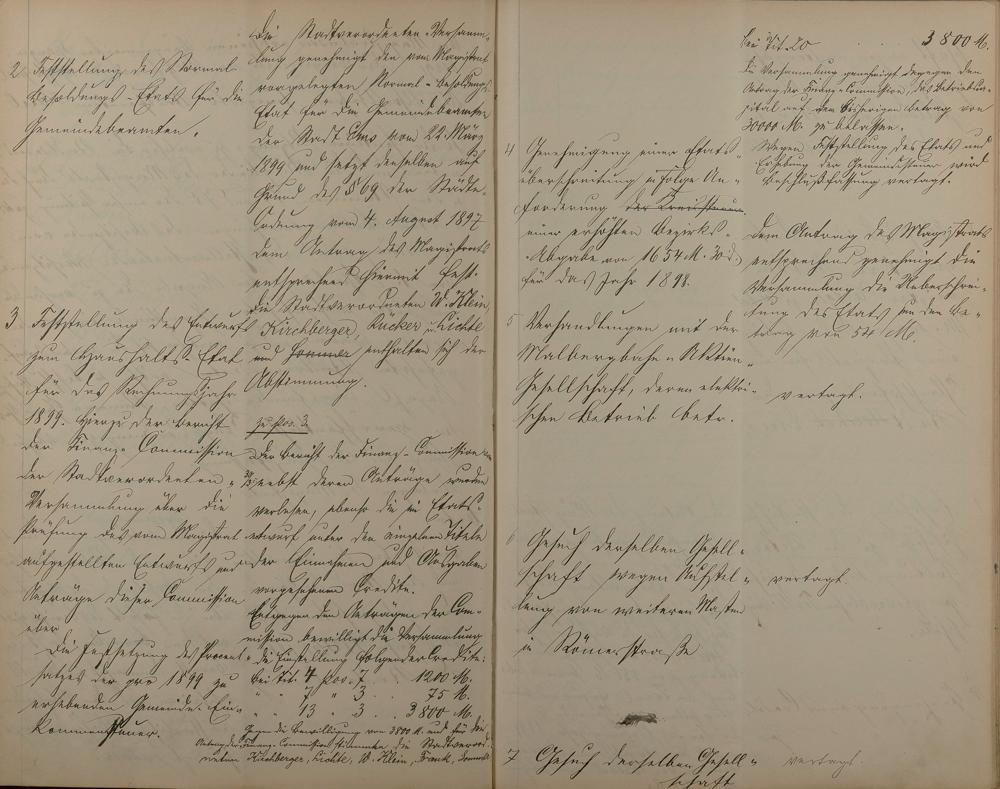 2 Feststellung des Normal-
Besoldungs-Etats für die
Gemeindebeamten.
Die Stadtverordneten-Versamm-
lung genehmigt den vom Magistrat
vorgelegten Normal-Besoldungs-
Etat für die Gemeindebeamten
der Stadt Ems vom 22. März
1899 und setzt denselben auf
Grund des § 69 der Städte-
Ordnung vom 4. August 1897
dem Antrag des Magistrats
entsprechend hiermit fest.
Die Stadtverordneten W. Klein,
Kirchberger, Rücker u. Lichte
und Sommer enthalten sich der
Abstimmung.
3 Feststellung des Entwurfs
zum Haushalts-Etat
für das Rechnungsjahr
1899. Hierzu der Bericht
der Finanz-Commission
der Stadtverordneten-
Versammlung über die
Prüfung des vom Magistrat
aufgestellten Entwurfs und
Anträge dieser Commission
über
Die Festsetzung des Procent-
satzes der pro 1899 zu
erhebenden Gemeinde-Ein-
kommensteuer.
zu pos. 3.
Der Bericht der Finanz-Commission
nebst deren Anträge wurden
verlesen, ebenso die im Etats-
entwurf unter den einzelnen Titeln
der Einnahmen und Ausgaben
vorgesehenen Credite.
Entgegen den Anträgen der Com-
mission bewilligt die Versammlung
die Einstellung folgender Credite:
bei Tit. 4 pos. 7 . 1200 M.
" " 7 " 3 . . 75 M.
" " 13 " 3 . . 3800 M.
Gegen die Bewilligung von 3800 M. und für den
Antrag der Finanz-Commission stimmten die Stadtverord-
neten Kirchberger, Lichte, W. Klein, Frank, Sommer
bei Tit. 20 . . 3800 M.
Die Versammlung genehmigt dagegen den
Antrag der Finanz-Commission, das Betriebska-
pital auf dem bisherigen Betrag von
30000 M. zu belassen.
Wegen Feststellung des Etats und
Erhebung der Gemeindesteuer wird
Beschlußfassung vertagt.
4 Genehmigung einer Etats-
überschreitung infolge An-
forderung der Kreissteuern
einer erhöhten Bezirks-
Abgabe von 1654 M. 30 d.
für das Jahr 1898.
Dem Antrag des Magistrats
entsprechend genehmigt die
Versammlung die Ueberschrei-
tung des Etats um den Be-
trag von 524 M.
5 Verhandlungen mit der
Malbergbahn-Aktien-
Gesellschaft, deren elektri-
schen Betrieb betr.
vertagt.
6 Gesuch derselben Gesell-
schaft wegen Aufstel-
lung von weiteren Masten
in Römerstraße
vertagt.
7 Gesuch derselben Gesell-
schaft
vertagt.